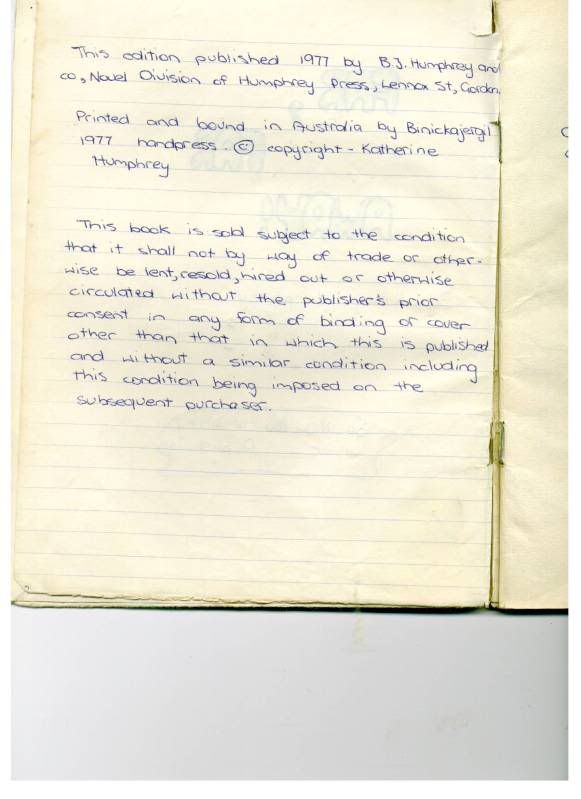 This edition published 1977 by B.J. Humphrey and
co, Novel Division of Humphrey Press, Lennox St, Gordon.
Printed and bound in Australia by Binickajergil
1977 handpress. © copyright - Katherine
Humphrey
This book is sold subject to the condition
that it shall not by way of trade or other-
wise be lent, resold, hired out or otherwise
circulated without the publisher's prior
consent in any form of binding or cover
other than that in which this is published
and without a similar condition including
this condition being imposed on the
subsequent purchaser.